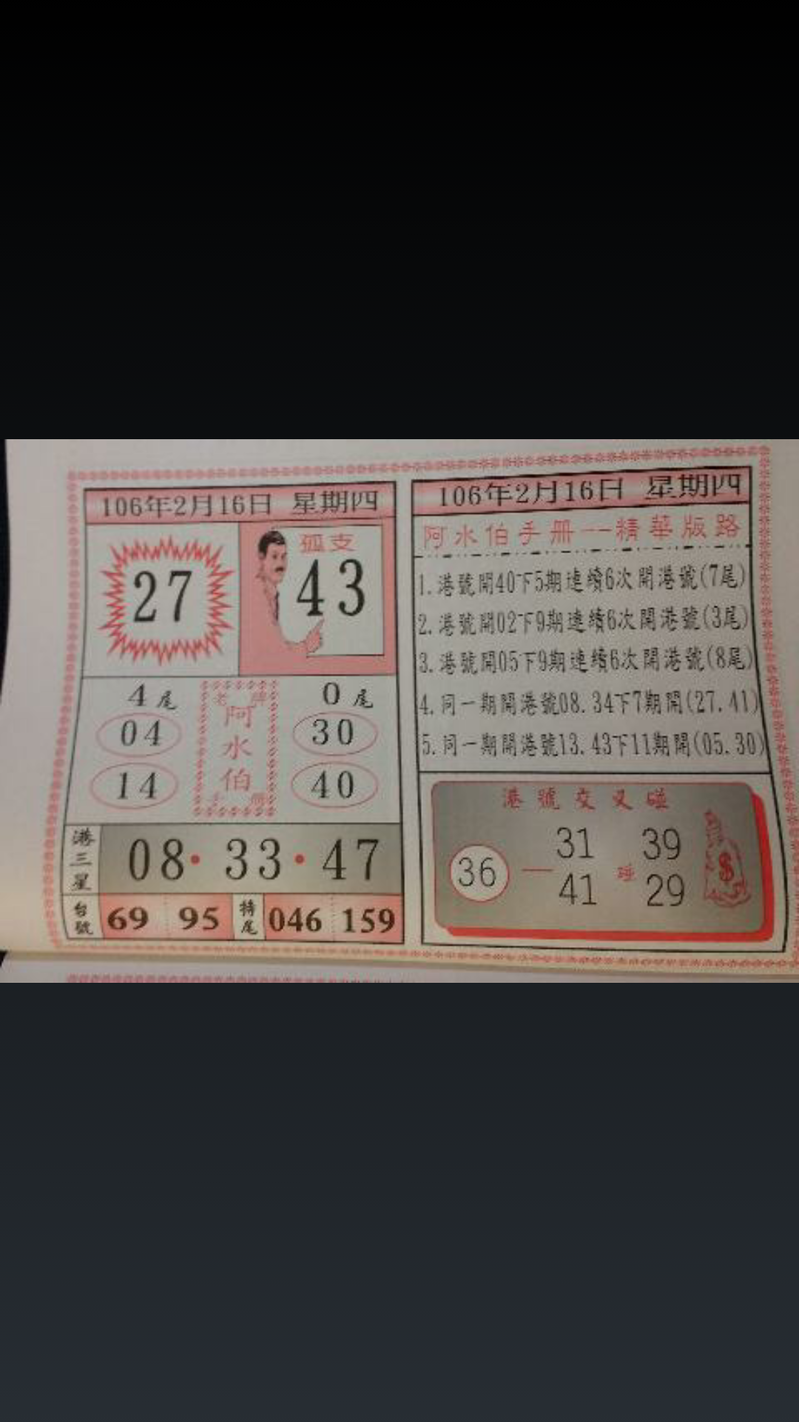 106年2月16日 星期四
27
孤支
43
4尾
04
14
老牌
阿水伯
手冊
0尾
30
40
港三星
08·33·47
台號
69 95
特尾
046 159
106年2月16日 星期四
阿水伯手冊--精華版路
1.港號開40下5期連續6次開港號(7尾)
2.港號開02下9期連續6次開港號(3尾)
3.港號開05下9期連續6次開港號(8尾)
4.同一期開港號08.34下7期開(27.41)
5.同一期開港號13.43下11期開(05.30)
港號交叉碰
31 39
36 — 碰
41 29
$